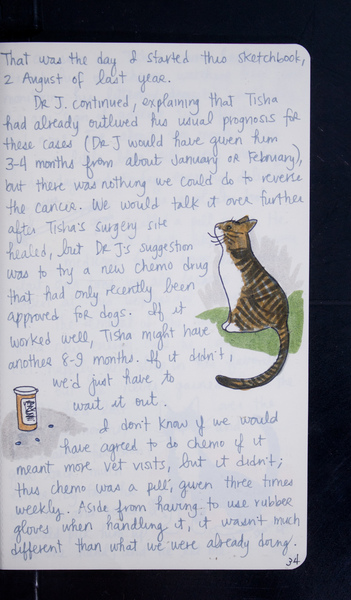 That was the day I started this sketchbook,
2 August of last year.
Dr J. continued, explaining that Tisha
had already outlived his usual prognosis for
these cases (Dr J would have given him
3-4 months from about January or February),
but there was nothing we could do to reverse
the cancer. We would talk it over further
after Tisha's surgery site
healed, but Dr J's suggestion
was to try a new chemo drug
that had only recently been
approved for dogs. If it
worked well, Tisha might have
another 8-9 months. If it didn't,
we'd just have to
wait it out.
I don't know if we would
have agreed to do chemo if it
meant more vet visits, but it didn't;
this chemo was a pill, given three times
weekly. Aside from having to use rubber
gloves when handling it, it wasn't much
different than what we were already doing.
34